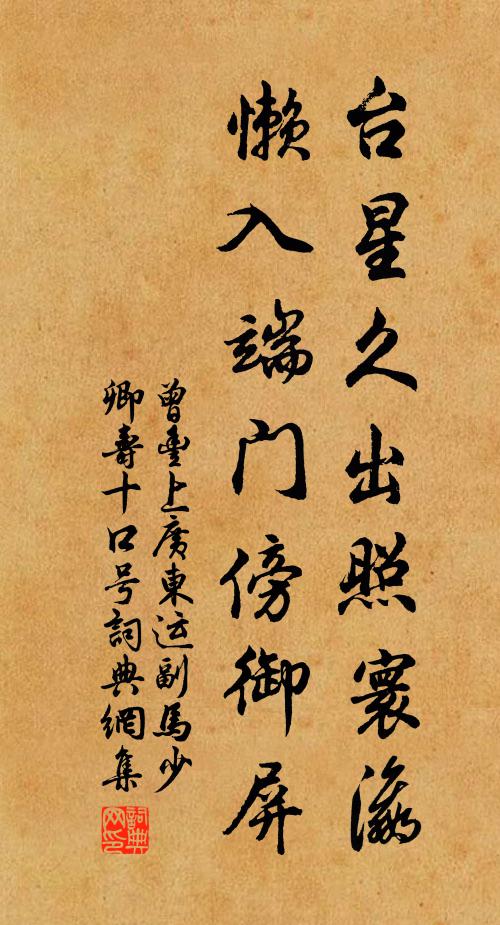 台星久出照寰瀛
懒入端门傍御屏
曾豐上廣東运副馬少
卿壽十口号詞典網集
詞典
网印